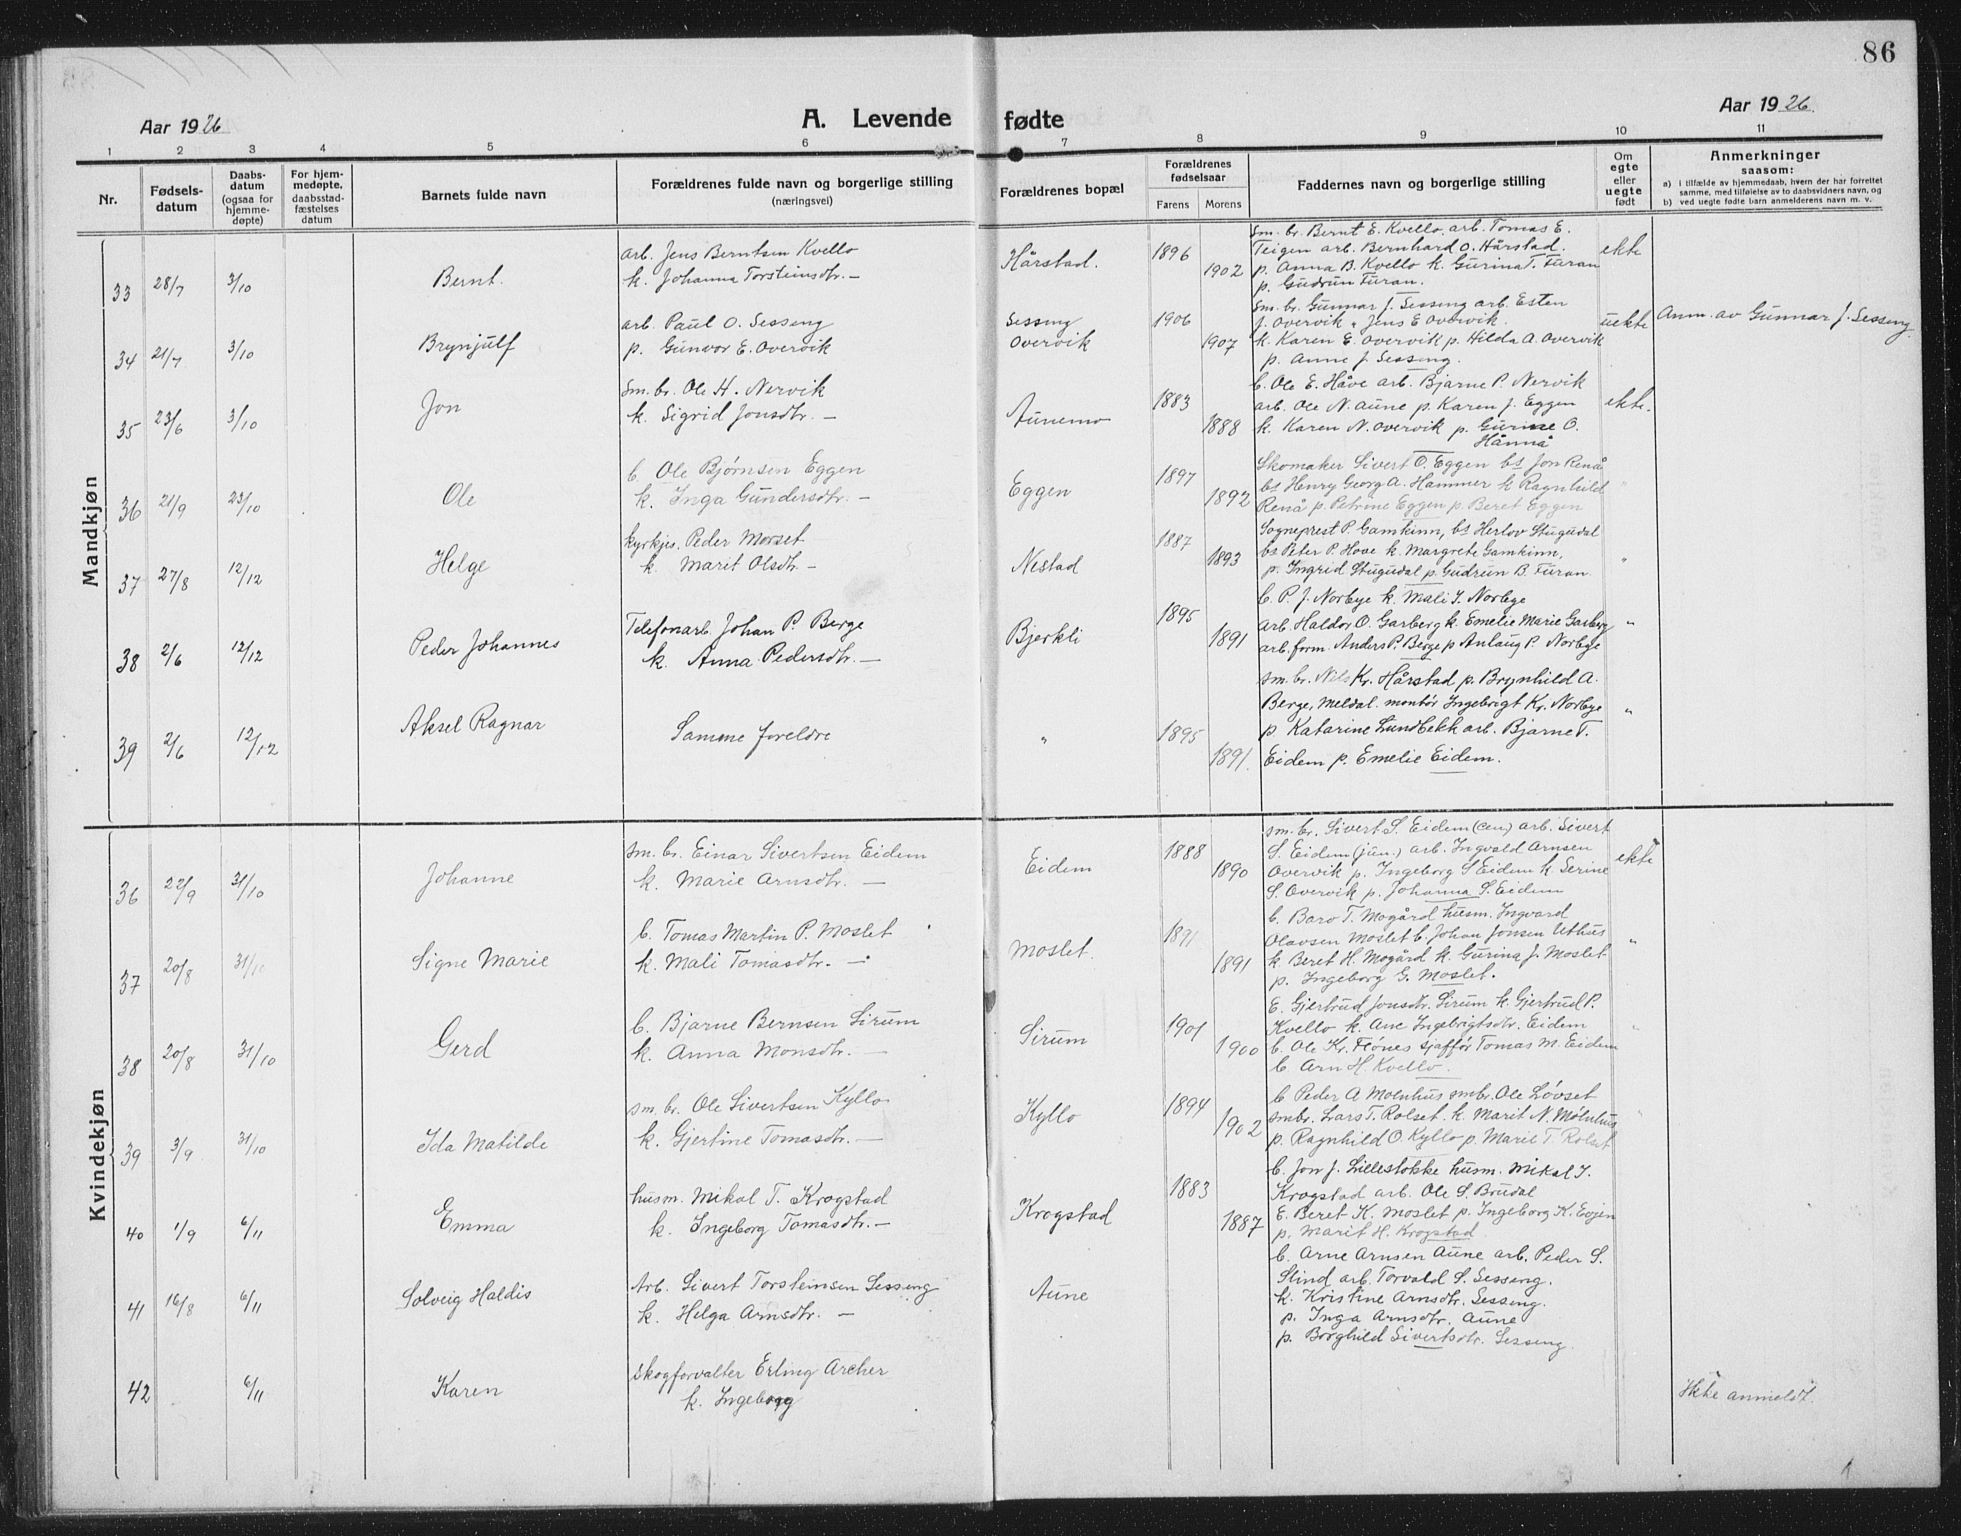 86
Aar 1926
A. Levende fødte
Aar 1926.
1 2 3 4 5 6 7 8 9 10 11
Nr.
Fødsels-
datum
Daabs-
datum
(ogsaa for
hjemme-
døpte)
For hjem-
medøpte,
daabsstad-
fæstelses
datum
Barnets fulde navn
Forældrenes fulde navn og borgerlige stilling
(næringsvei)
Forældrenes bopæl
Forældrenes
fødselsaar
Farens Morens
Faddernes navn og borgerlige stilling
Om
egte
eller
uegte
født
Anmerkninger
saasom:
a) i tilfælde av hjemmedaab, hvem der har forrettet
samme, med tilføielse av to daabsvidners navn, og
b) ved uegte fødte barn anmelderens navn m. v.
Mandkjøn
33 28/7 3/10 Bernt.
arb. Jens Berntsen Kvello
k. Johanna Torsteinsdtr. —
Hårstad. 1896 1902
sm. br. Bernt E. Kvello, arb. Tomas E.
Teigen arb. Bernhard O. Hårstad.
p. Anna B. Kvello k. Gurina T. Furan
p. Gudrun Furan.
ekte
34 21/7 3/10 Brynjulf
arb. Paul O. Sesseng
p. Gunvor E. Overvik
Sesseng
Overvik
1906 1907
sm. br. Gunnar J. Sesseng arb. Esten
J. Overvik " Jens E Overvik.
k. Karen E. Overvik p. Hilda A. Overvik
p. Anne J. Sesseng.
uekte
Anm. av Gunnar J. Sesseng.
35 23/6 3/10 Jon
sm. br. Ole H. Nervik
k. Sigrid Jonsdtr. —
Aunemo 1883 1888
b. Ole E. Håve arb. Bjarne P. Nervik
arb. Ole N. Aune p. Karen J. Eggen
k. Karen N. Overvik p. Gurine O.
Hånnå
ekte.
36 21/9 23/10 Ole
b. Ole Bjørnsen Eggen
k. Inga Gundersdtr. —
Eggen 1897 1892
Skomaker Sivert O. Eggen bs Jon Renå
bs Henry Georg A. Hammer k Ragnhild
Renå p. Petrine Eggen p. Beret Eggen
"
37 27/8 12/12 Helge
kyrkjes. Peder Morset
k. Marit Olsdtr. —
Nestad 1887 1893
Sogneprest P. Gamkinn, bs Herlov Stugudal
bs Peter P. Hove k. Margrete Gamkinn,
p. Ingrid Stugudal p. Gudrun B. Furan.
"
38 2/6 12/12 Peder Johannes
Telefonarb. Johan P. Berge
k. Anna Pedersdtr. —
Bjerkli 1895 1891
b. P. J. Norbye k. Mali I. Norbye
arb. Haldor O. Garberg k. Emelie Marie Garberg
arb. form. Anders P. Berge p Anlaug P. Norbye
"
39 2/6 12/12 Aksel Ragnar
Samme foreldre
" 1895 1891.
sm. br. Nils Kr. Hårstad p. Brynhild A.
Berge, Meldal. montør Ingebrigt Kr. Norbye
p Katarine Lundbekk arb. Bjarne T.
Eidem p. Emelie Eidem.
"
Kvindekjøn
36 22/9 31/10 Johanne
sm. br. Einar Sivertsen Eidem
k. Marie Arnsdtr. —
Eidem 1888 1890
sm. br. Sivert S. Eidem (sen) arb. Sivert
S. Eidem (jun.) arb. Ingvald Arnsen
Overvik p. Ingeborg S Eidem k. Serine
S. Overvik p. Johanna S. Eidem
ekte
37 20/8 31/10 Signe Marie
b. Tomas Martin P. Moslet
k. Mali Tomasdtr. —
Moslet. 1891
b. Baro T. Mogård husm. Ingvard
Olavsen Moslet b. Johan Jonsen Uthus
k Beret H. Mogård k. Gurina J. Moslet
p. Ingeborg G. Moslet.
"
38 20/8 31/10 Gerd
b. Bjarne Bernsen Sirum
k. Anna Monsdtr. —
Sirum 1901 1900
E. Gjertrud Jonsdtr. Sirum k. Gjertrud P.
Kvello k. Ane Ingebrigtsdtr. Eidem
b. Ole Kr. Flønes sjafför Tomas M. Eidem
b. Arn H. Kvello.
"
39 3/9 31/10 Ida Matilde
sm. br. Ole Sivertsen Kyllo
k. Gjertine Tomasdtr. —
Kyllo 1894 1902
b Peder A Moenhus smbr. Ole Løvset
smbr. Lars T. Rolset. k. Marit N. Mølnhus
p. Ragnhild O. Kyllo p. Marie T. Rolset
"
40 1/9 6/11 Emma
husm. Mikal T. Krogstad
k. Ingeborg Tomasdtr. —
Krogstad 1883 1887
b. Jon J. Lillestokke husm. Mikal I.
Krogstad arb. Ole S. Brudal
E. Beret K. Moslet p. Ingeborg K. Evjen
p. Marit H. Krogstad
41 16/8 6/11 Solveig Haldis
Arb. Sivert Torsteinsen Sesseng
k. Helga Arnsdtr. —
Aune
b. Arne Arnsen Aune arb. Peder S.
Slind arb. Torvald S. Sesseng.
k. Kristine Arnsdtr. Sesseng.
p. Inga Arnsdtr. Aune
p. Borghild Sivertsdtr. Sesseng.
42 6/11 Karen
Skogforvalter Erling Archer
k. Ingeborg
Ikke anmeldt.